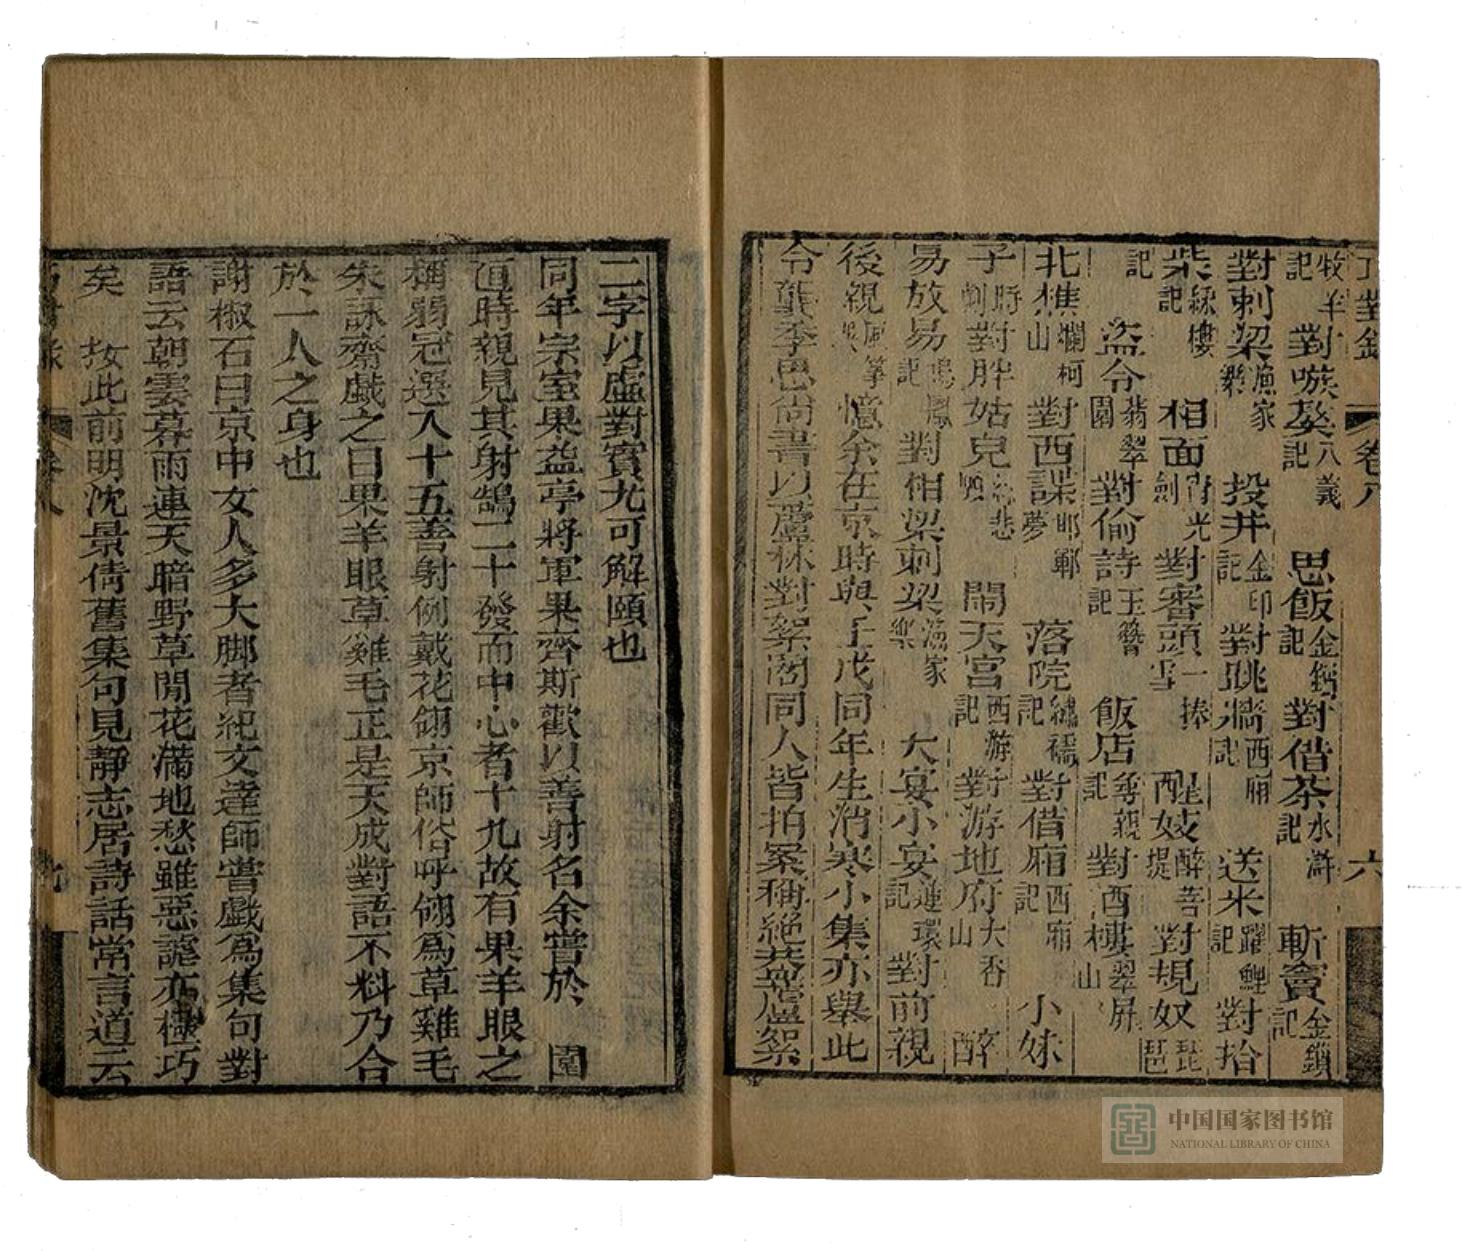 巧對錄 卷八 六
牧羊記 對嗾獒八義記 思飯金鎖記 對借茶水滸記 斬竇金鎖記
對刺梁漁家樂 投井金印記 對跳牆西廂記 送米躍鯉記 對拾
柴綵樓記 相面宵光劍 對審頭一捧雪 醒妓醉菩提 對規奴琵琶
記 盜令翡翠園 對偷詩玉簪記 飯店尋親記 對西樓翠屏山
北樵爛柯山 對西諜邯鄲夢 落院繡襦記 對借廂西廂記 小妹
子時劇 對胖姑兒 鬧天宮西游記 對游地府大香山 醉
易放易鳴鳳記 對相梁刺梁漁家樂 大宴小宴連環記 對前親
後親風箏誤 憶余在京時與壬戌同年生消寒小集亦舉此
令龔季思尚書以蘆林對絮閣同人皆拍案稱絕葢蘆絮
二字以虛對實尤可解頤也
同年宗室果益亭將軍果齊斯歡以善射名余嘗於 園
直時親見其射鵠二十發而中心者十九故有果羊眼之
稱弱冠選入十五善射例戴花翎京師俗呼翎爲草雞毛
朱詠齋戲之曰果羊眼草雞毛正是天成對語不料乃合
於一人之身也
謝椒石曰京中女人多大脚者紀文達師嘗戲爲集句對
語云朝雲暮雨連天暗野草閒花滿地愁雖惡謔亦極巧
矣 按此前明沈景倩舊集句見靜志居詩話常言道云
巧對錄 卷八 九
中国国家图书馆
NATIONAL LIBRARY OF CHINA